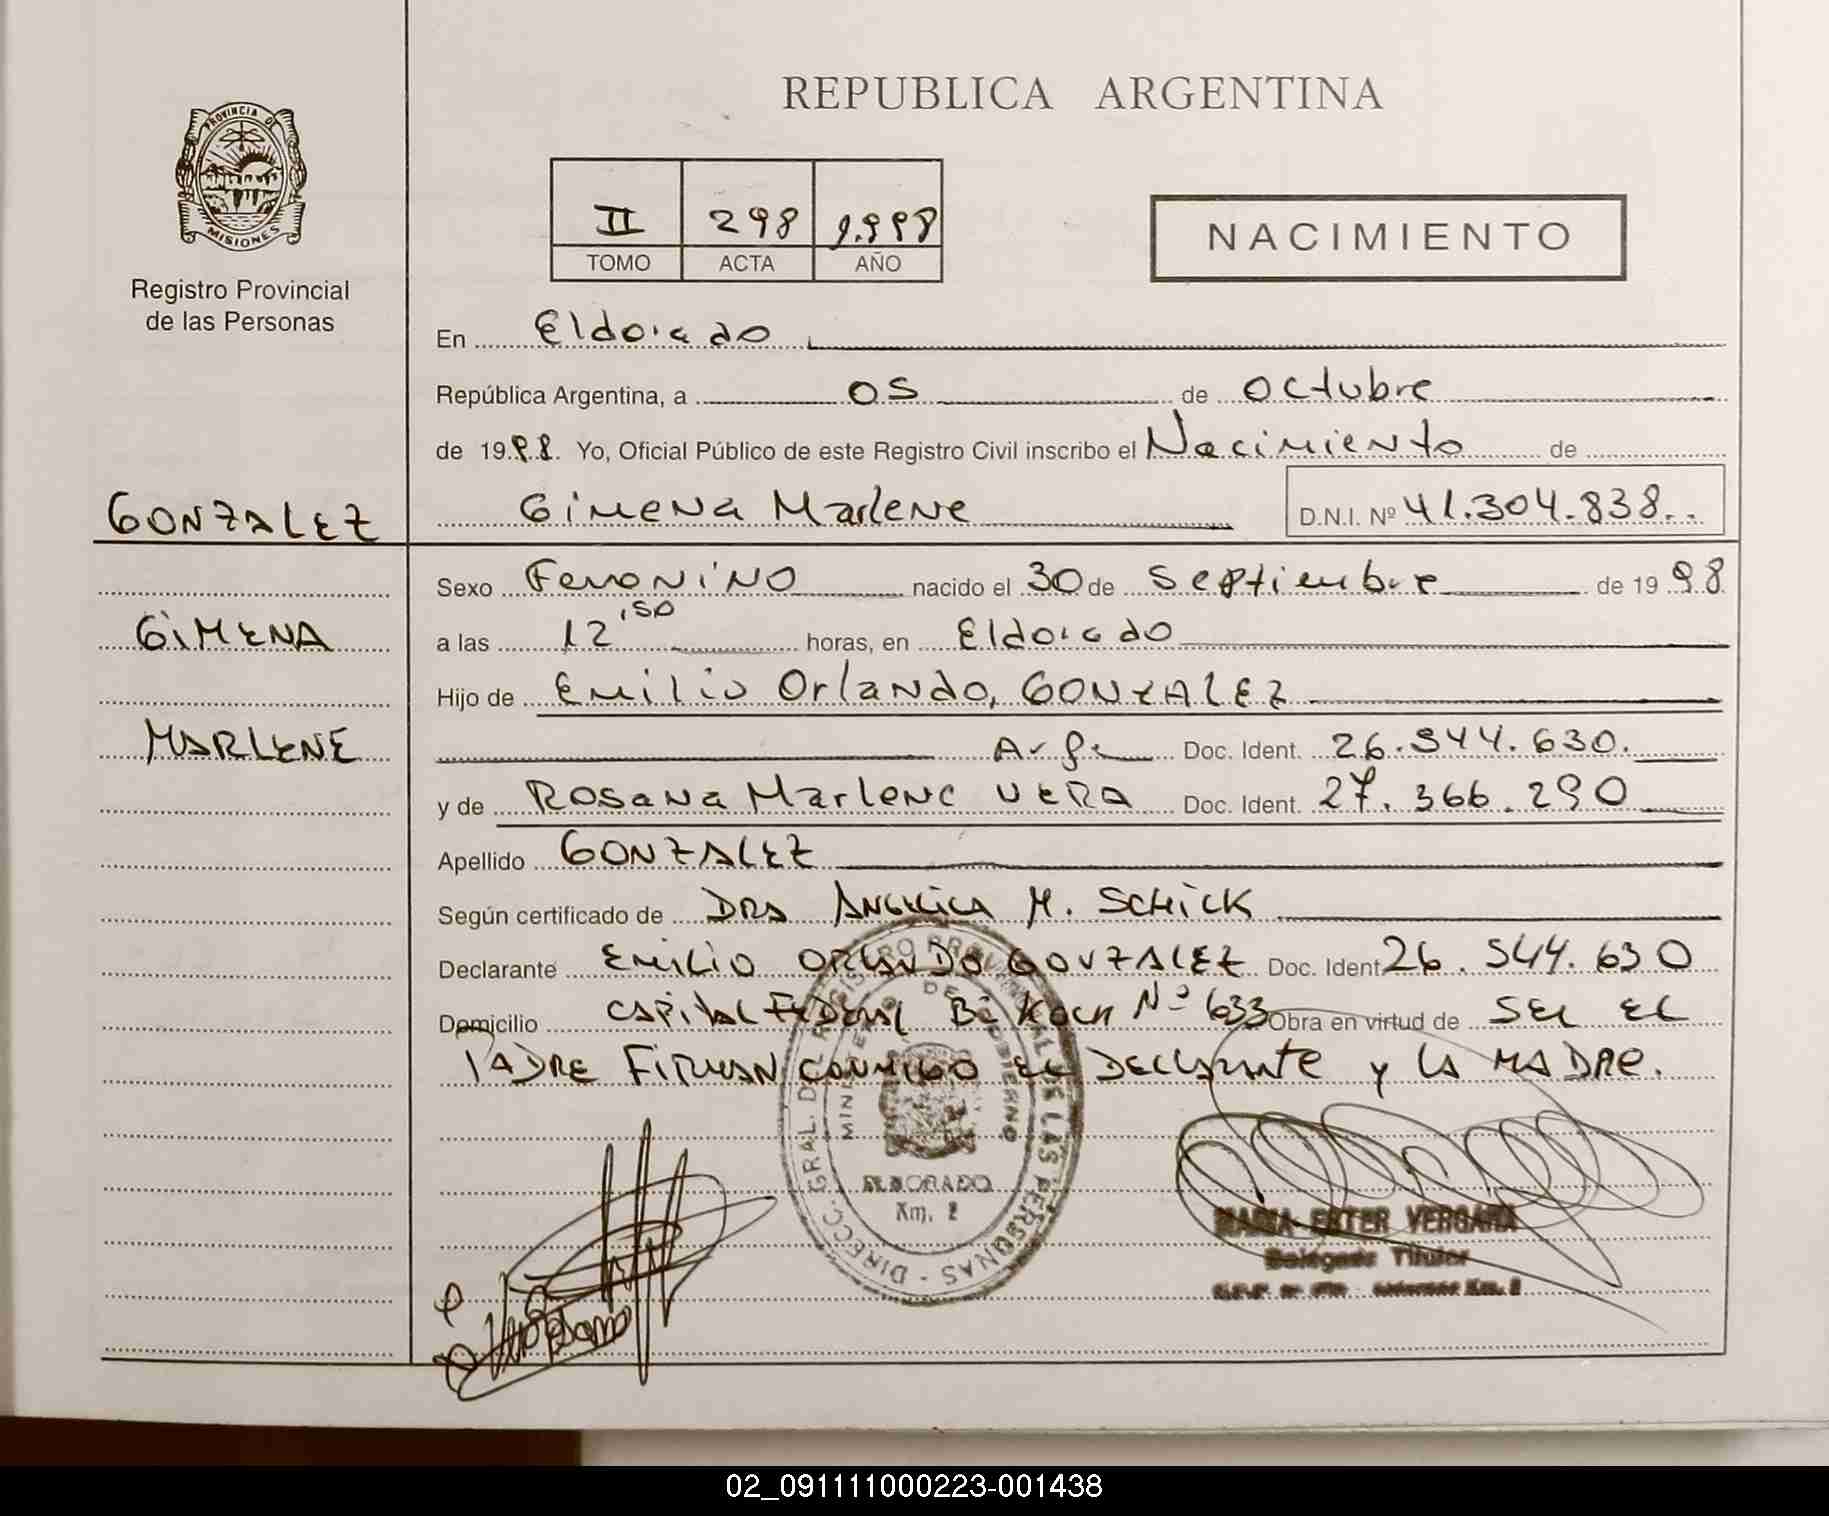 REPUBLICA ARGENTINA
PROVINCIA DE
MISIONES
Registro Provincial
de las Personas
II 298 1.998
TOMO ACTA AÑO
NACIMIENTO
En Eldorado
República Argentina, a 05 de Octubre
de 1998. Yo, Oficial Público de este Registro Civil inscribo el Nacimiento de
GONZALEZ
Gimena Marlene D.N.I. Nº 41.304.838..
Sexo Femenino nacido el 30 de Septiembre de 1998
GIMENA
a las 12,50 horas, en Eldorado
Hijo de Emilio Orlando, GONZALEZ
MARLENE
Arg. Doc. Ident. 26.544.630.
y de Rosana Marlene VERA Doc. Ident. 27.366.290
Apellido GONZALEZ
Según certificado de DRA ANGELICA M. SCHICK
Declarante EMILIO ORLANDO GONZALEZ Doc. Ident 26.544.630
Domicilio CAPITAL FEDERAL Bº KOCH Nº 633 Obra en virtud de SER EL
PADRE FIRMAN CONMIGO EL DECLARANTE y LA MADRE.
DIRECC. GRAL. DEL REGISTRO PROVINCIAL DE LAS PERSONAS
MINISTERIO DE GOBIERNO
ELDORADO
Km. 2
MARIA ESTER VERGARA
Delegado Titular
02_091111000223-001438